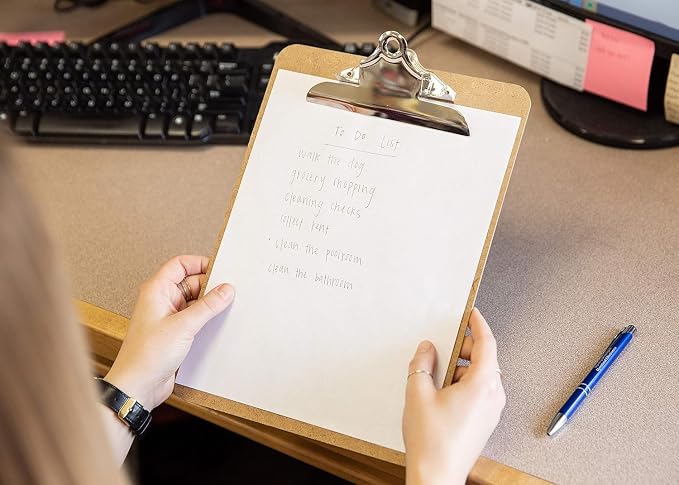 To Do List
walk the dog
grocery shopping
cleaning checks
collect rent
clean the poolroom
clean the bathroom